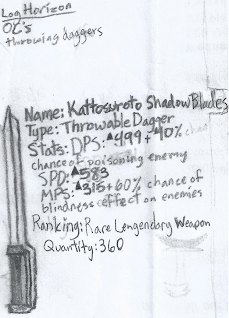 Log Horizon
OC's
throwing daggers
Name: Kattosuroto Shadow Blades
Type: Throwable Dagger
Stats: DPS: ▲499 + 40% chance
chance of poisoning enemy
SPD: ▲583
MPS: ▲315 + 60% chance of
blindness effect on enemies
Ranking: Rare Lengendary Weapon
Quantity: 360